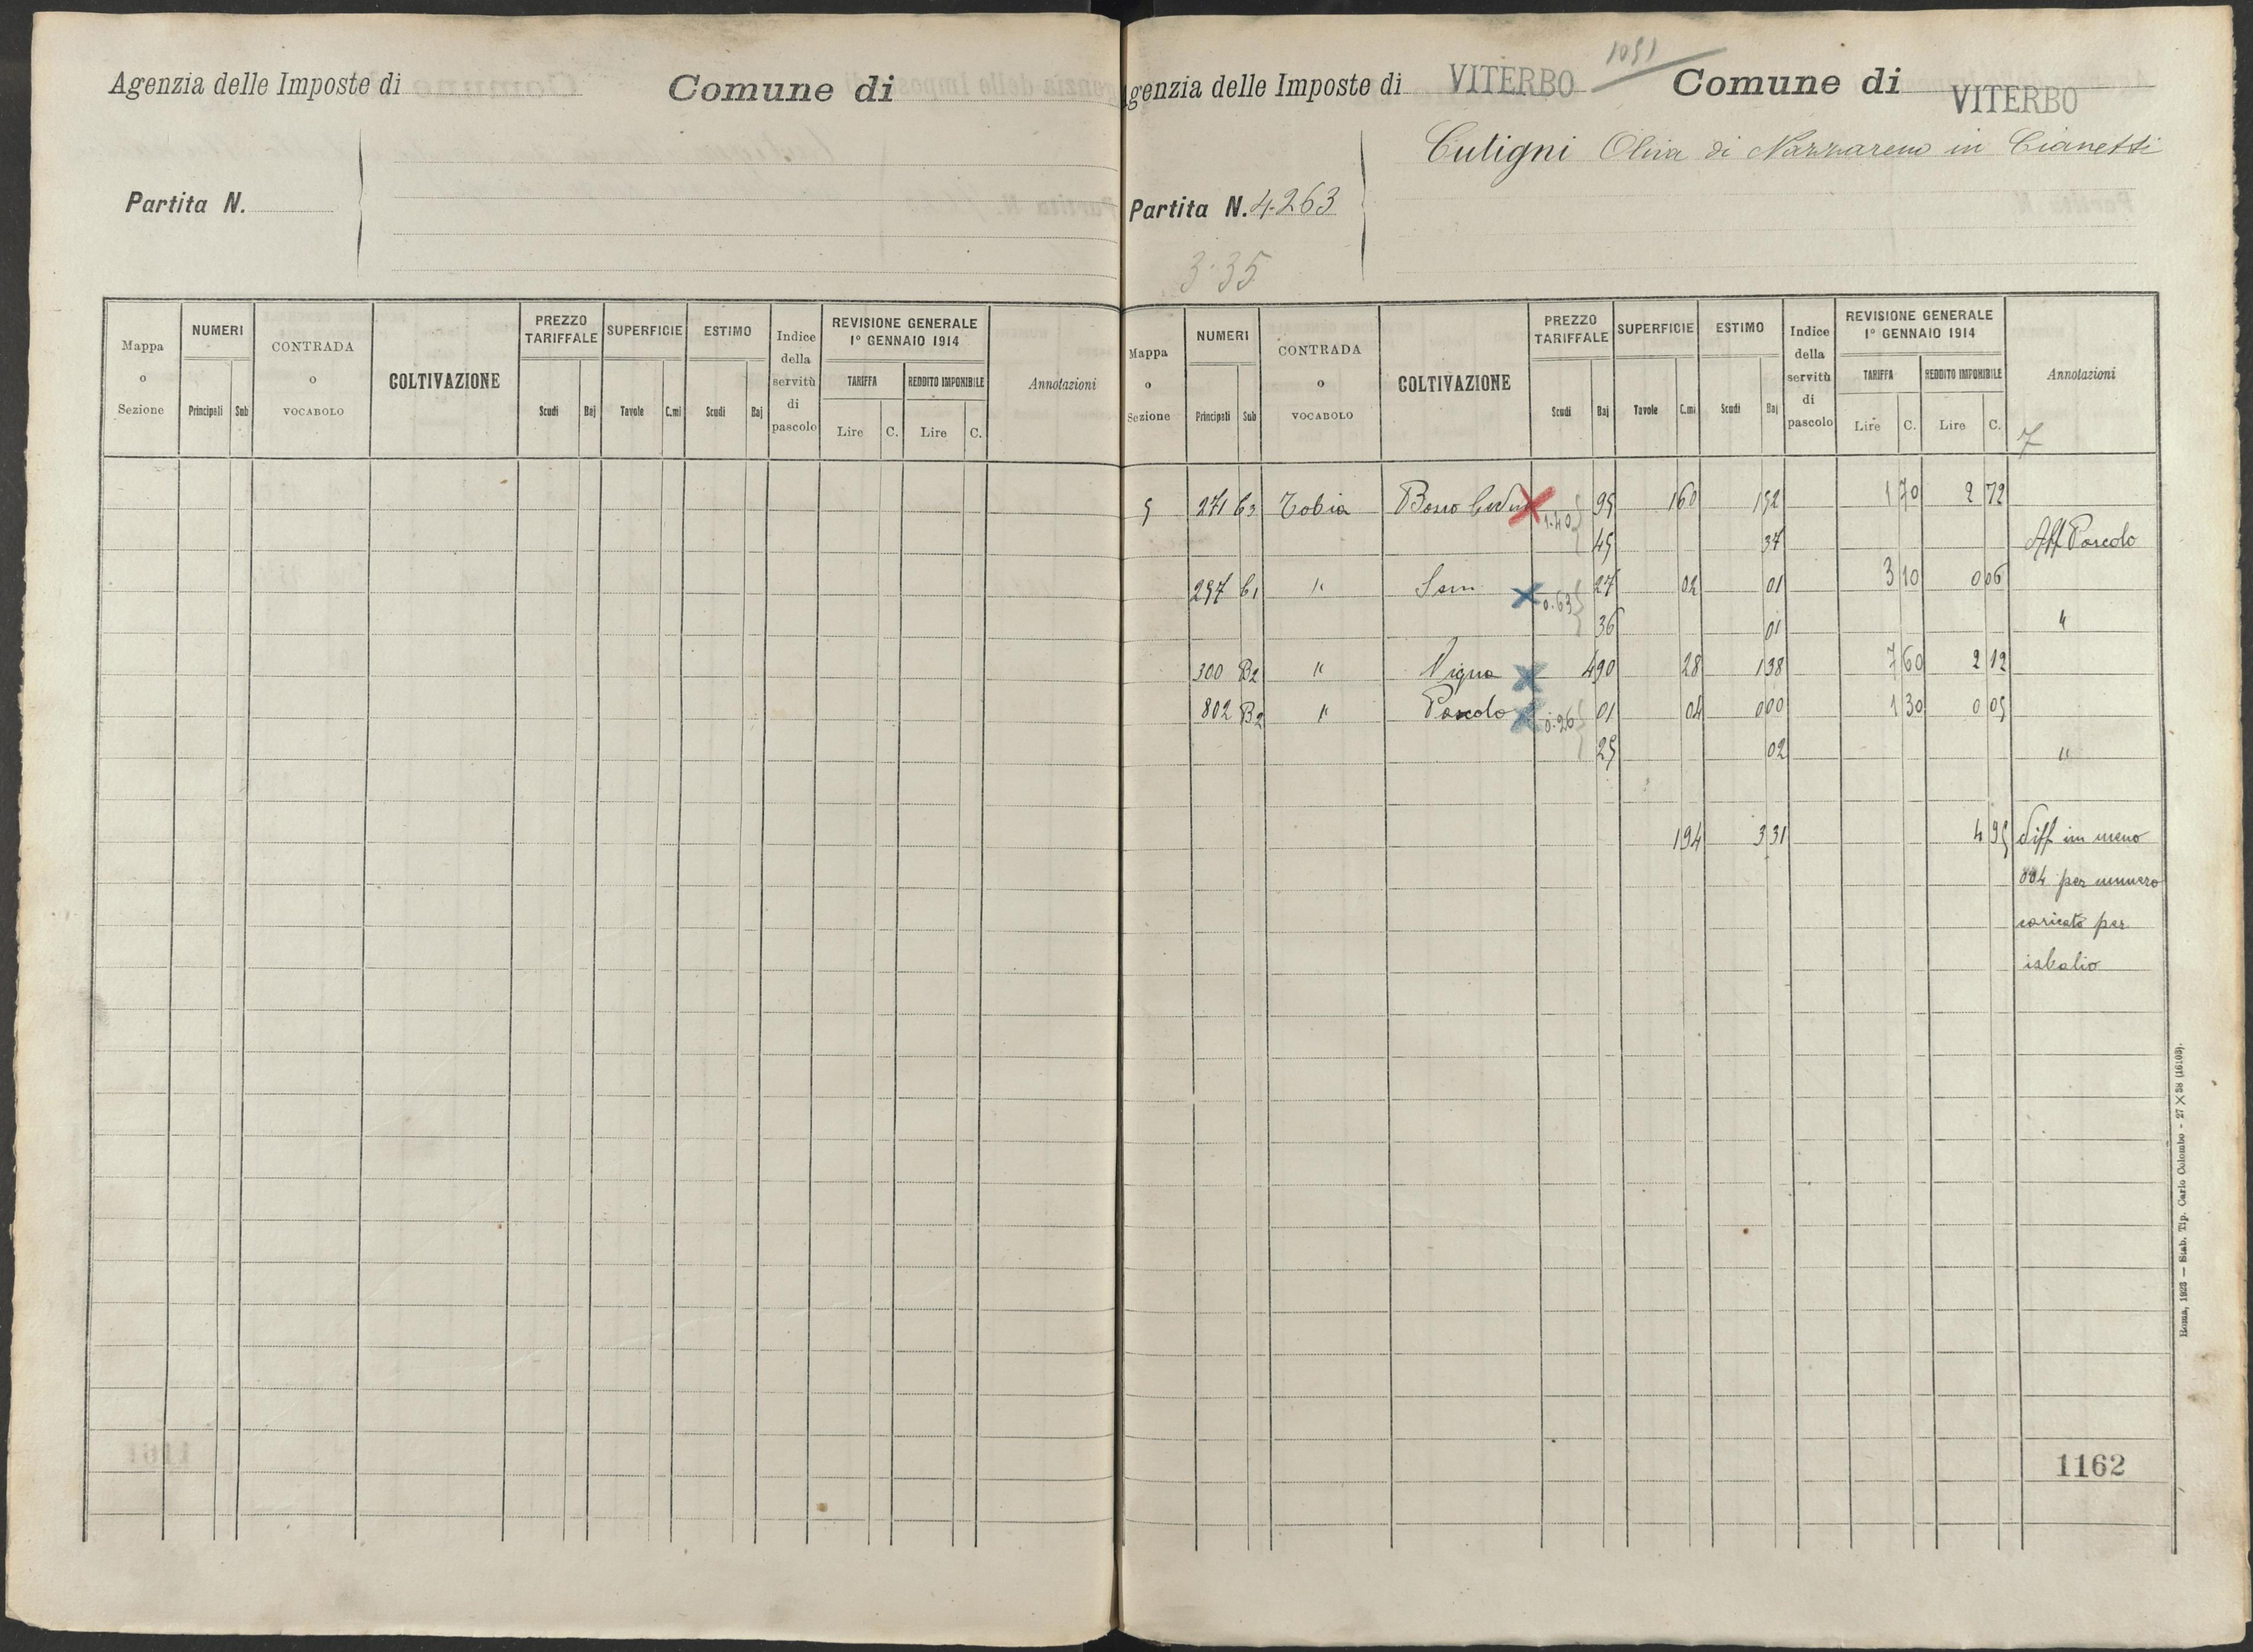 Agenzia delle Imposte di Comune di
Partita N.
Mappa o Sezione NUMERI Principali Sub CONTRADA o VOCABOLO COLTIVAZIONE PREZZO TARIFFALE Scudi Baj SUPERFICIE Tavole C.mi ESTIMO Scudi Baj Indice della servitù di pascolo REVISIONE GENERALE 1º GENNAIO 1914 TARIFFA Lire C. REDDITO IMPONIBILE Lire C. Annotazioni
1051
genzia delle Imposte di VITERBO Comune di VITERBO
Cutigni Oliva di Nazzareno in Cianetti
Partita N. 4263
3.35
Mappa o Sezione NUMERI Principali Sub CONTRADA o VOCABOLO COLTIVAZIONE PREZZO TARIFFALE Scudi Baj SUPERFICIE Tavole C.mi ESTIMO Scudi Baj Indice della servitù di pascolo REVISIONE GENERALE 1º GENNAIO 1914 TARIFFA Lire C. REDDITO IMPONIBILE Lire C. Annotazioni
7
5 271 63 Tobia Bosco 1.40 95 1 60 1 52 1 70 2 72
45 37 Aff Pascolo
297 61 " Sem 0.63 27 02 01 3 10 0 06
36 01 "
300 B2 " Vigna 4 90 28 1 38 7 60 2 12
802 B2 " Pascolo 0.26 01 04 0 00 1 30 0 05
25 02 "
1 94 3 31 4 95 Diff in meno
004 per numero
caricato per
isbalio
1162
Roma, 1923 — Stab. Tip. Carlo Colombo - 27 X 38 (16103).